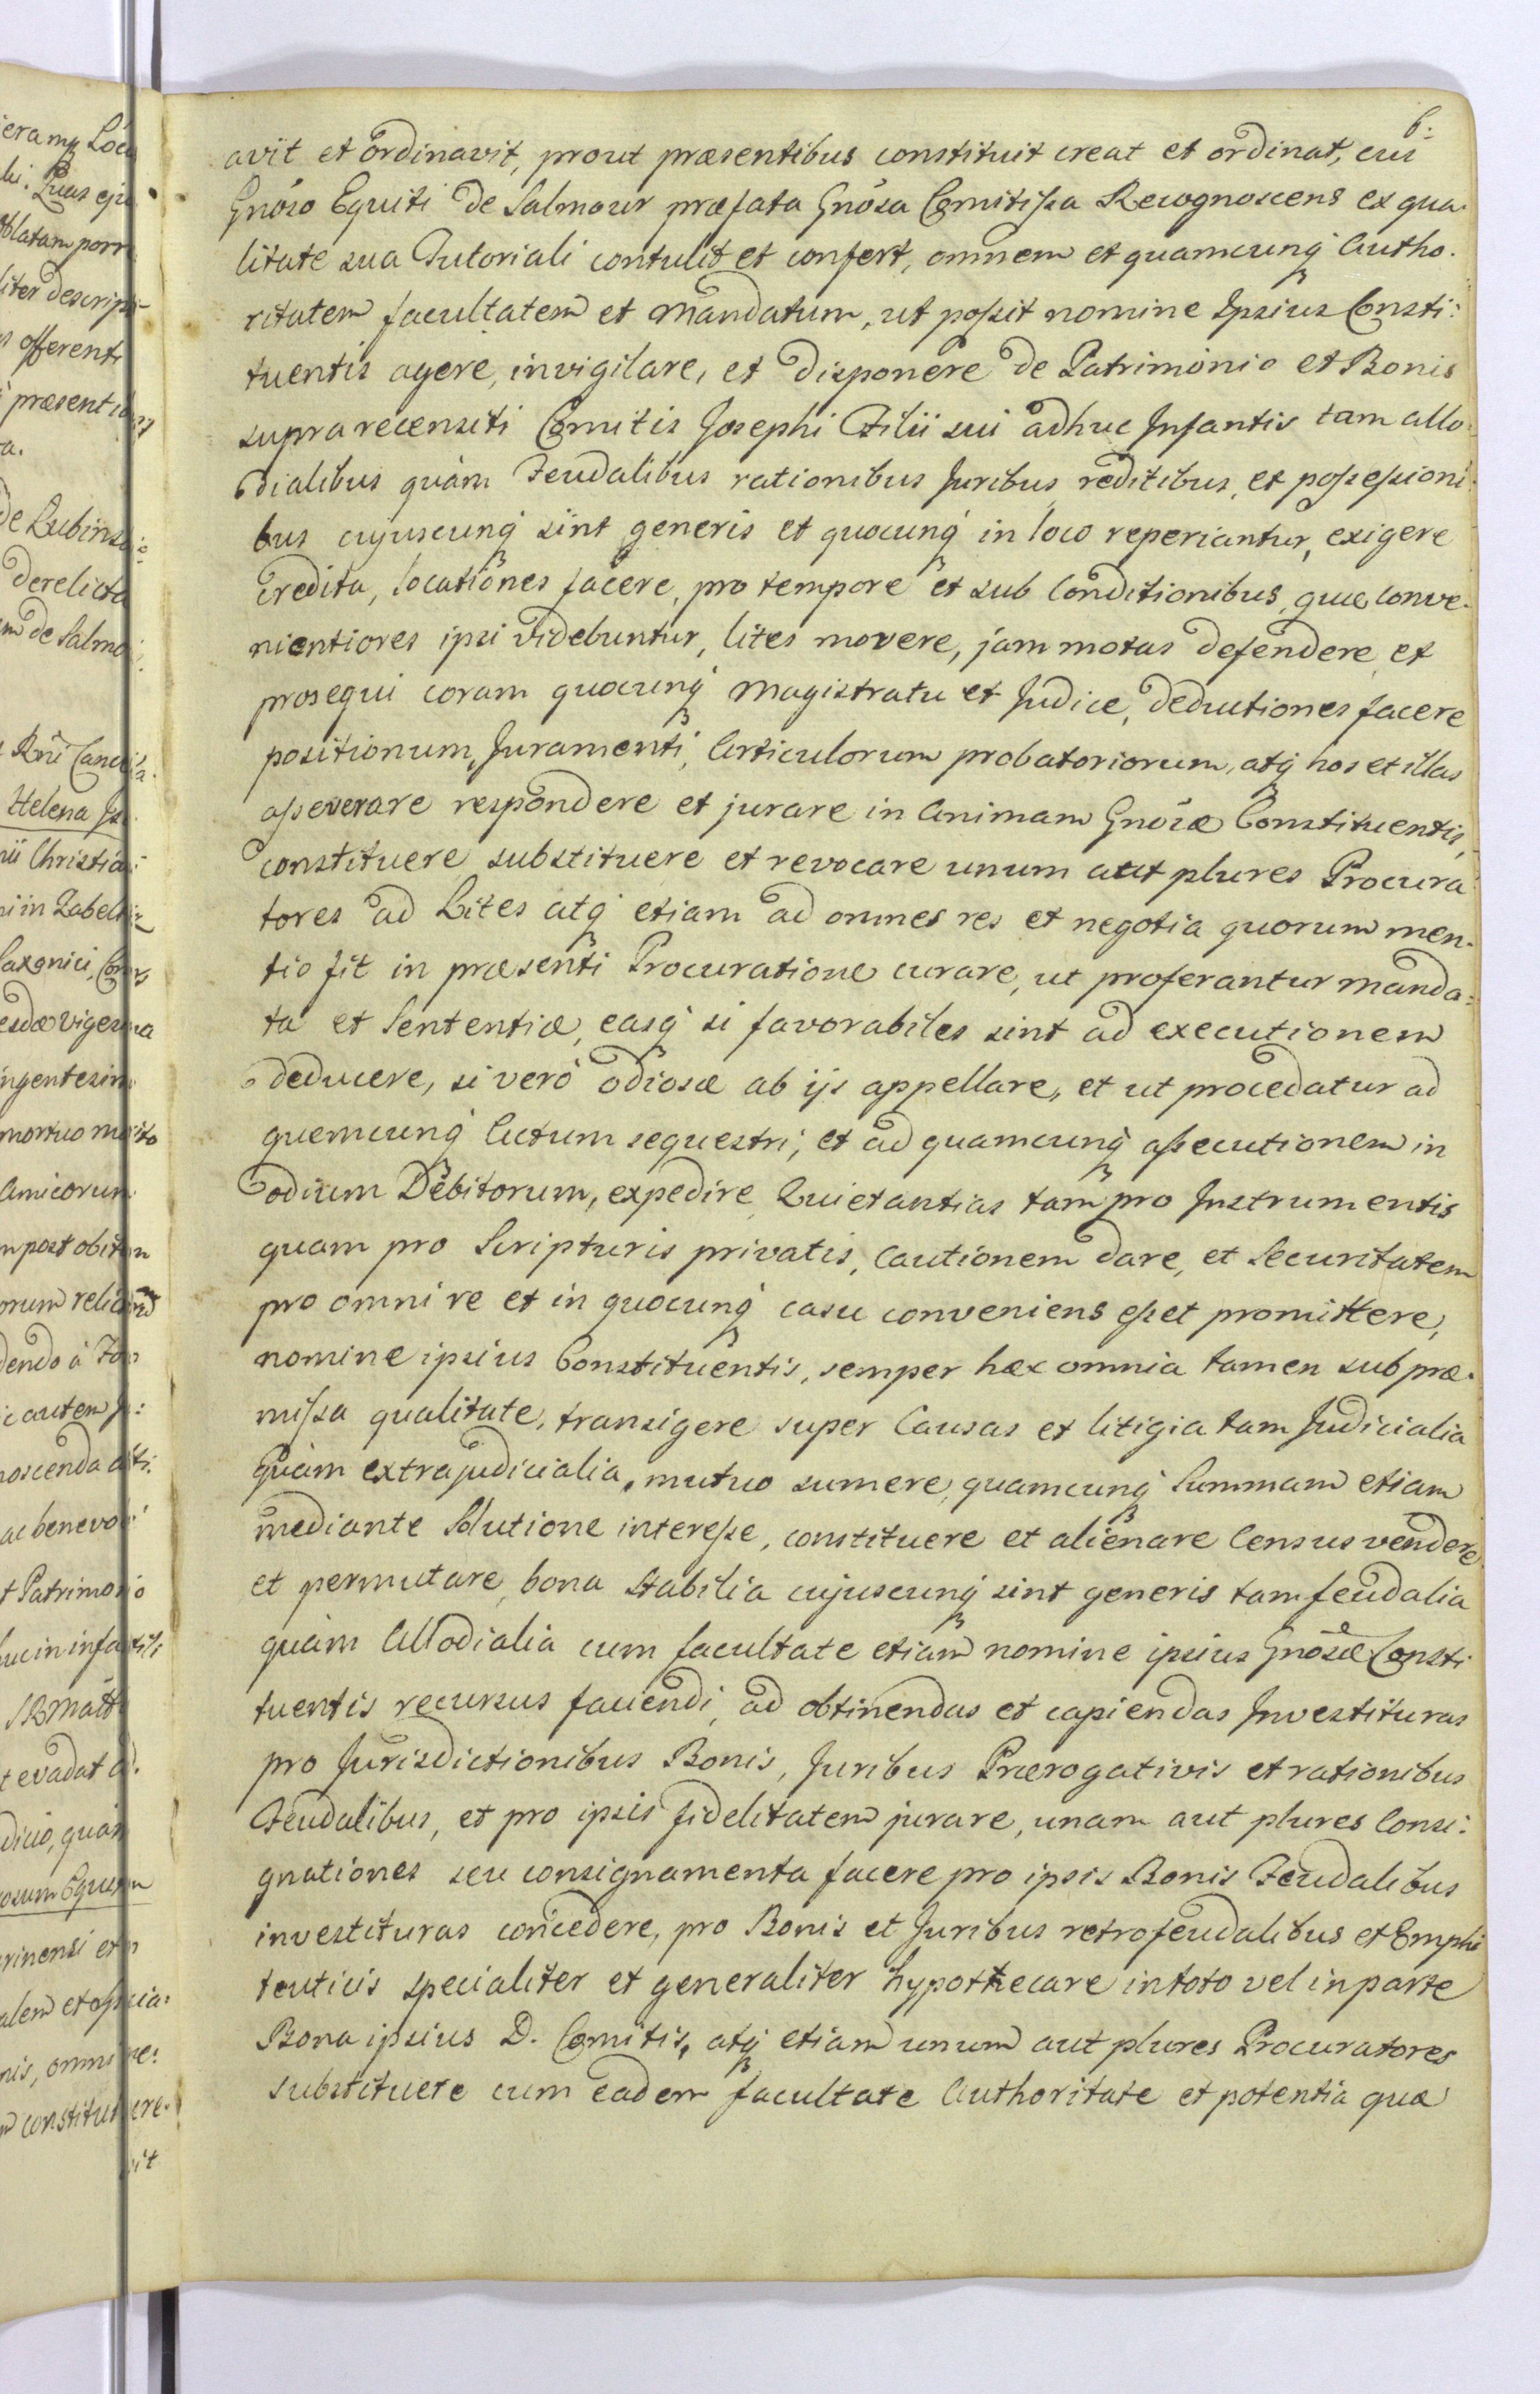 6:
avit et ordinavit, prout præsentibus constituit creat et ordinat, cui
Gnóso Equiti de Salmour præfata Gnósa Comitissa Recognoscens ex qua-
litate sua Tutoriali contulit et confert, omnem et quamcunq́ Autho-
ritatem facultatem et Mandatum, ut possit nomine Ipsius Consti:
tuentis agere, invigilare, et disponere de Patrimonio et Bonis
supra recensiti Comitis Josephi Filii sui adhuc Infantis tam allo-
dialibus quàm Feudalibus rationibus Juribus reditibus, et possessioni-
bus cujuscunq́ sint generis et quocunq́ in loco reperiantur, exigere
Credita, locationes facere, pro tempore et sub Conditionibus, quæ conve-
nientiores ipsi videbuntur, lites movere, jam motas defendere et
prosequi coram quocunq́ Magistratu et Judice, deductiones facere
positionum, Juramenti, Articulorum probatoriorum, atq́ hos et illas
asseverare respondere et jurare in Animam Gnósæ Constituentis,
constituere substituere et revocare unum aut plures Procura-
tores ad Lites atq́ etiam ad omnes res et negotia quorum men-
tio fit in præsenti Procuratione curare, ut proferantur manda-
ta et Sententiæ, easq́ si favorabiles sint ad executionem
deducere, si verò odiosæ ab ijs appellare, et ut procedatur ad
quemcunq́ Actum sequestri, et ad quamcunq́ assecutionem in
odium Debitorum, expedire Quietantias tam pro Instrumentis
quam pro Scripturis privatis, Cautionem dare, et Securitatem
pro omni re et in quocunq́ casu conveniens esset promittere,
nomine ipsius Constituentis, semper hæc omnia tamen sub præ-
missa qualitate, transigere super Causas et litigia tam Judicialia
Quàm extrajudicialia, mutuo sumere quamcunq́ Summam etiam
mediante Solutione interesse, constituere et alienare Census vendere
et permutare, bona Stabilia cujuscunq́ sint generis tam feudalia
quàm Allodialia cum facultate etiam nomine ipsius Gnósæ Consti
tuentis recursus faciendi, ad obtinendas et capiendas Investituras
pro Jurisdictionibus Bonis, Juribus Prærogativis et rationibus
Feudalibus, et pro ipsis fidelitatem jurare, unam aut plures Consi:
gnationes seu consignamenta facere pro ipsis Bonis Feudalibus
investituras concedere, pro Bonis et Juribus retrofeudalibus et Emphi
teuticis specialiter et generaliter hypothecare in toto vel in parte
Bona ipsius D. Comitis, atq́ etiam unum aut plures Procuratores
substituere cum eadem facultate Authoritate et potentia quæ